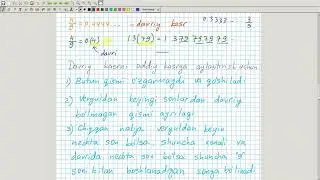 4/9 = 0,4444 ... - davriy kasr 0.3333 - 3/9
4/9 = 0(4) 1.3(79) = 1.379797979
davri
Davriy kasrni oddiy kasrga aylantirish uchun
1) Butun qismi o'zgarmaydi va qo'shiladi
2) Verguldan keyingi sonlardan davriy
bo'lmagan qismi ayriladi
3) Chiqqan natija verguldan keyin
nechta son bo'lsa shuncha
davrida nechta son bo'lsa shuncha 9
soni bilan boshlanadigan songa bo'linadi